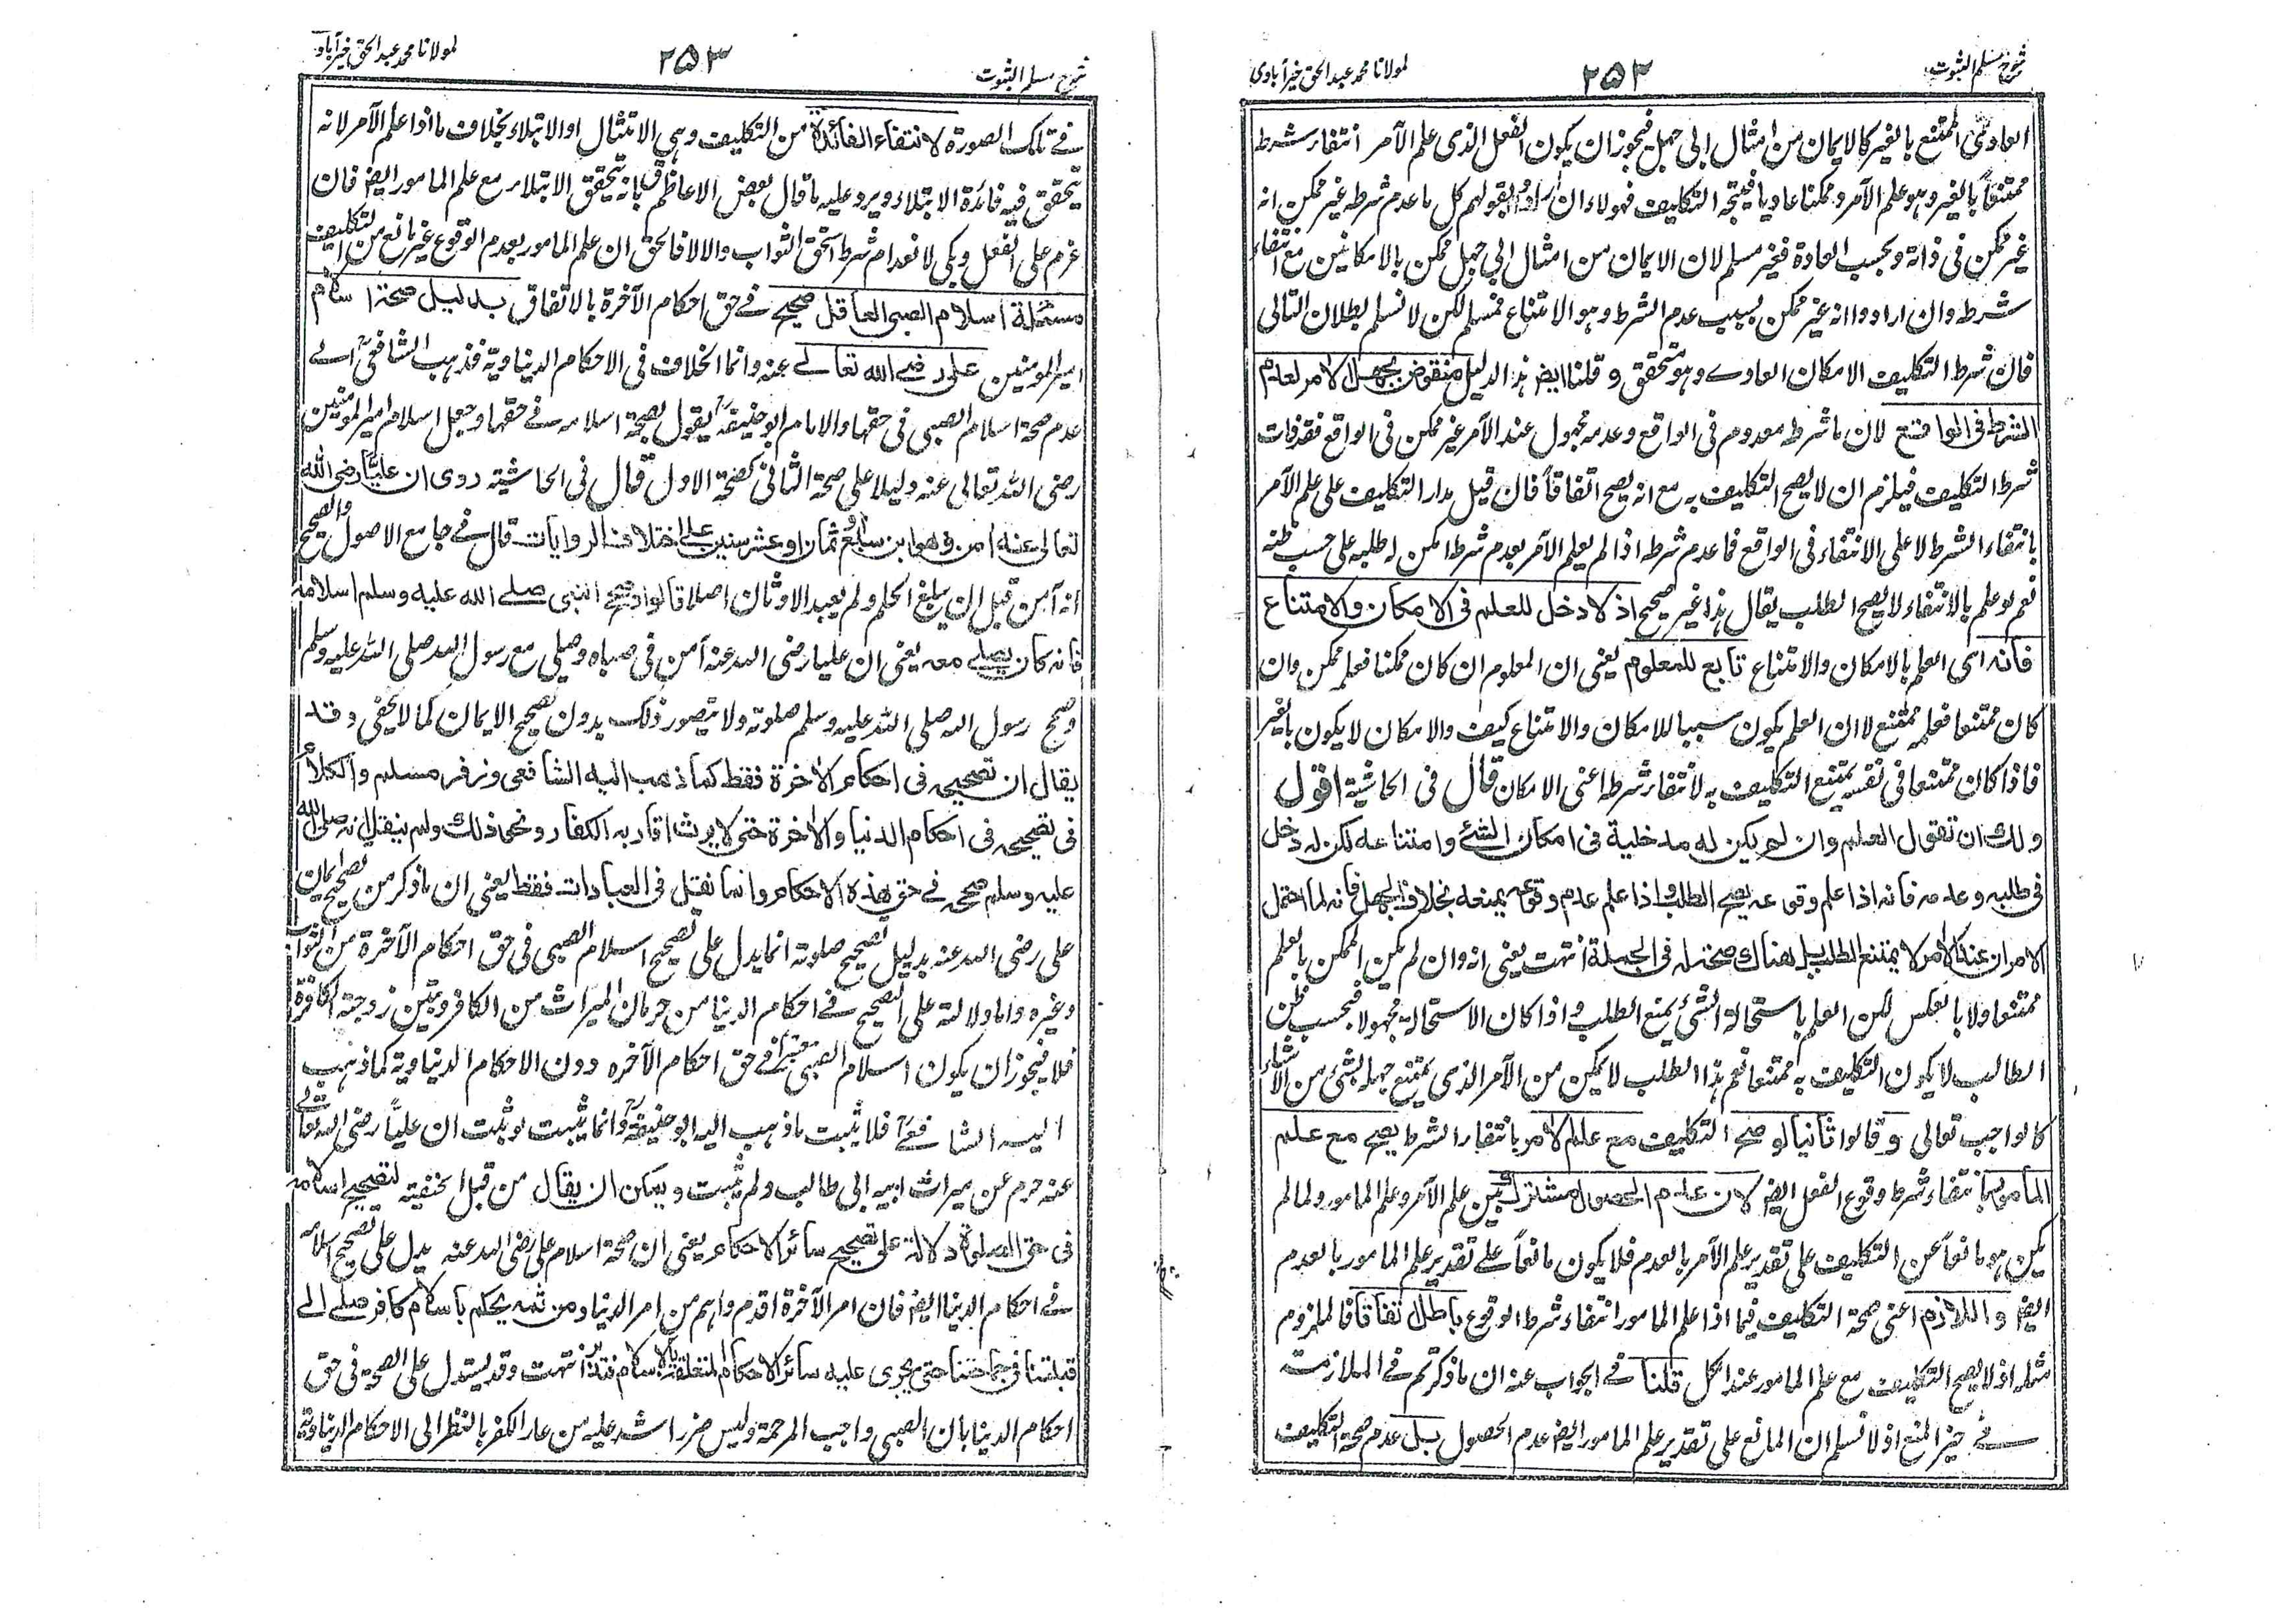 شرح مسلم الثبوت
۲۵۲
لمولانا محمد عبد الحق خیرآبادی
العادی الممتنع بالغیر کالایمان من امثال ابی جہل فیجوز ان یکون الفعل الذی علم الآمر انتفاء شرط
ممتنعاً بالغیر وہو علم الآمر وممکنا عادیا فیتجہ التکلیف فہولاء ان ارادوا بقولہم کل ما عدم شرطہ غیر ممکن انہ
غیر ممکن فی ذاتہ وبحسب العادة فغیر مسلم لان الایمان من امثال ابی جہل ممکن بالامکانین مع انتفاء
شرطہ وان ارادوا انہ غیر ممکن بسبب عدم الشرط وہو الامتناع فمسلم لکن لا نسلم بطلان التالی
فان شرط التکلیف الامکان العادے وہو متحقق وقلنا ایضا ہذا الدلیل منقوض بجہل الامر لعدم
الشرط فی الواقع لان ما شرط معدوم فی الواقع وعدمہ مجہول عند الآمر غیر ممکن فی الواقع فقد فات
شرط التکلیف فیلزم ان لا یصح التکلیف بہ مع انہ یصح اتفاقاً فان قیل مدار التکلیف علی علم الآمر
بانتفاء الشرط لا علی الانتفاء فی الواقع فما عدم شرطہ اذا لم یعلم الآمر بعدم شرطہ امکن لہ طلبہ علی حسب ظنہ
نعم لو علم بالانتفاء لا یصح الطلب یقال ہذا غیر صحیح اذ لا دخل للعلم فی الامکان والامتناع
فانہ ای العلم بالامکان والامتناع تابع للمعلوم یعنی ان المعلوم ان کان ممکنا فعلم ممکن وان
کان ممتنعا فعلم ممتنع لا ان العلم یکون سببا للامکان والامتناع کیف والامکان لا یکون بالغیر
فاذا کان ممتنعا فی نفسہ یمتنع التکلیف بہ لانتفاء شرطہ اعنی الامکان قال فی الحاشیۃ اقول
ولک ان تقول العلم وان لم یکن لہ مدخلیة فی امکان الشئ وامتناعہ لکن لہ دخل
فی طلبہ وعدمہ فانہ اذا علم وقوعہ یصح الطلب واذا علم عدم وقوعہ یمنعہ بخلاف الجہل فانہ لما احتمل
الامران عند الامر لا یمتنع الطلب بل ہناک صحتہ فی الجملۃ انتہت یعنی انہ وان لم یکن الممکن بالعلم
ممتنعا ولا بالعکس لکن العلم باستحالۃ الشئ یمنع الطلب واذا کان الاستحالۃ مجہولا فبحسب ظن
الطالب لا یکون التکلیف بہ ممتنعا نعم ہذا الطلب لا یمکن من الآمر الذی یمتنع جہلہ بشئ من الاشیاء
کالواجب تعالی وقالوا ثانیا لو صحۃ التکلیف مع علم الامر بانتفاء الشرط یصح مع علم
المامور بانتفاء شرط وقوع الفعل ایضا لان عدم الحصول مشترک بین علم الآمر وعلم المامور ولما لم
یکن ہو مانعاً عن التکلیف علی تقدیر علم الآمر بالعدم فلا یکون مانعاً علے تقدیر علم المامور بالعدم
ایضا واللازم اعنی صحۃ التکلیف فیما اذا علم المامور انتفاء شرط الوقوع باطل اتفاقا فالملزوم
مثلہ اذ لا یصح التکلیف مع علم المامور عند الکل قلنا فے الجواب عنہ ان ما ذکرتم فے الملازمۃ
فے حیز المنع اذ لا نسلم ان المانع علی تقدیر علم المامور ایضا عدم الحصول بل عدم صحۃ التکلیف
شرح مسلم الثبوت
۲۵۳
لمولانا محمد عبد الحق خیرآبادی
فے تلک الصورة لانتفاء الفائدة من التکلیف وہی الامتثال او الابتلاء بخلاف ما اذا علم الآمر لانہ
یتحقق فیہ فائدة الابتلاء ویرد علیہ ما قال بعض الاعاظم بانہ یتحقق الابتلاء مع علم المامور ایضا فان
عزم علی الفعل وبکی لانعدام شرطہ استحق الثواب والا لا فالحق ان علم المامور بعدم الوقوع غیر مانع من التکلیف
مسئلۃ اسلام الصبی العاقل صحیح فے حق احکام الآخرة بالاتفاق بدلیل صحۃ اسلام
امیر المومنین علی رضی الله تعالے عنہ وانما الخلاف فی الاحکام الدنیاویۃ فذہب الشافعی الے
عدم صحۃ اسلام الصبی فی حقہا والامام ابو حنیفۃ یقول بصحۃ اسلامہ فے حقہا وجعل اسلام امیر المومنین
رضی اللہ تعالی عنہ دلیلا علی صحۃ الثانی کصحۃ الاول قال فی الحاشیۃ روی ان علیاً رضی الله
تعالی عنہ امن وهو ابن سبع او ثمان او عشر سنین علی اختلاف الروایات قال فے جامع الاصول والصحیح
انہ آمن قبل ان یبلغ الحلم ولم یعبد الاوثان اصلا قالوا وصحح النبی صلے الله علیہ وسلم اسلامہ
فانہ کان یصلے معہ یعنی ان علیا رضی اللہ عنہ آمن فی صباہ وصلی مع رسول اللہ صلی اللہ علیہ وسلم
وصحح رسول اللہ صلی اللہ علیہ وسلم صلوتہ ولا یتصور ذلک بدون تصحیح الایمان کما لا یخفی وقد
یقال ان تصحیحہ فی احکام الاٰخرة فقط کما ذهب الیہ الشافعی وزفر مسلم والکلام
فی تصحیحہ فی احکام الدنیا والاٰخرة حتی لا یرث اقاربہ الکفار ونحو ذلک ولم ینقل انہ صلی الله
علیہ وسلم صححہ فے حق هذہ الاحکام وانما نقل فی العبادات فقط یعنی ان ما ذکر من تصحیح ایمان
علی رضی اللہ عنہ بدلیل تصحیح صلوتہ انما یدل علی تصحیح اسلام الصبی فی حق احکام الآخرة من الثواب
وغیرہ واما دلالتہ علی التصحیح فے احکام الدنیا من حرمان المیراث من الکافر وبین زوجتہ الکافرة
فلا فیجوز ان یکون اسلام الصبی معتبراً فے حق احکام الآخرہ دون الاحکام الدنیاویۃ کما ذہب
الیہ الشافعی فلا یثبت ما ذہب الیہ ابو حنیفۃ وانما یثبت لو ثبت ان علیاً رضی اللہ تعالے
عنہ حرم عن میراث ابیہ ابی طالب ولم یثبت ویمکن ان یقال من قبل الحنفیۃ لتصحیح اسلامہ
فی حق الصلوۃ دلالۃ علی تصحیح سائر الاحکام یعنی ان صحۃ اسلام علی رضی اللہ عنہ یدل علی تصحیح اسلامہ
فے احکام الدنیا ایضا فان امر الآخرة اقدم واہم من امر الدنیا ومن ثمہ یحکم باسلام کافر صلے الے
قبلتنا فی جماعتنا حتی یجری علیہ سائر الاحکام المتعلقۃ بالاسلام فتدبر انتہت وقد یستدل علی الصحۃ فی حق
احکام الدنیا بان الصبی واجب المرحمۃ ولیس ضررا اشد علیہ من عار الکفر بالنظر الی الاحکام الدنیاویۃ